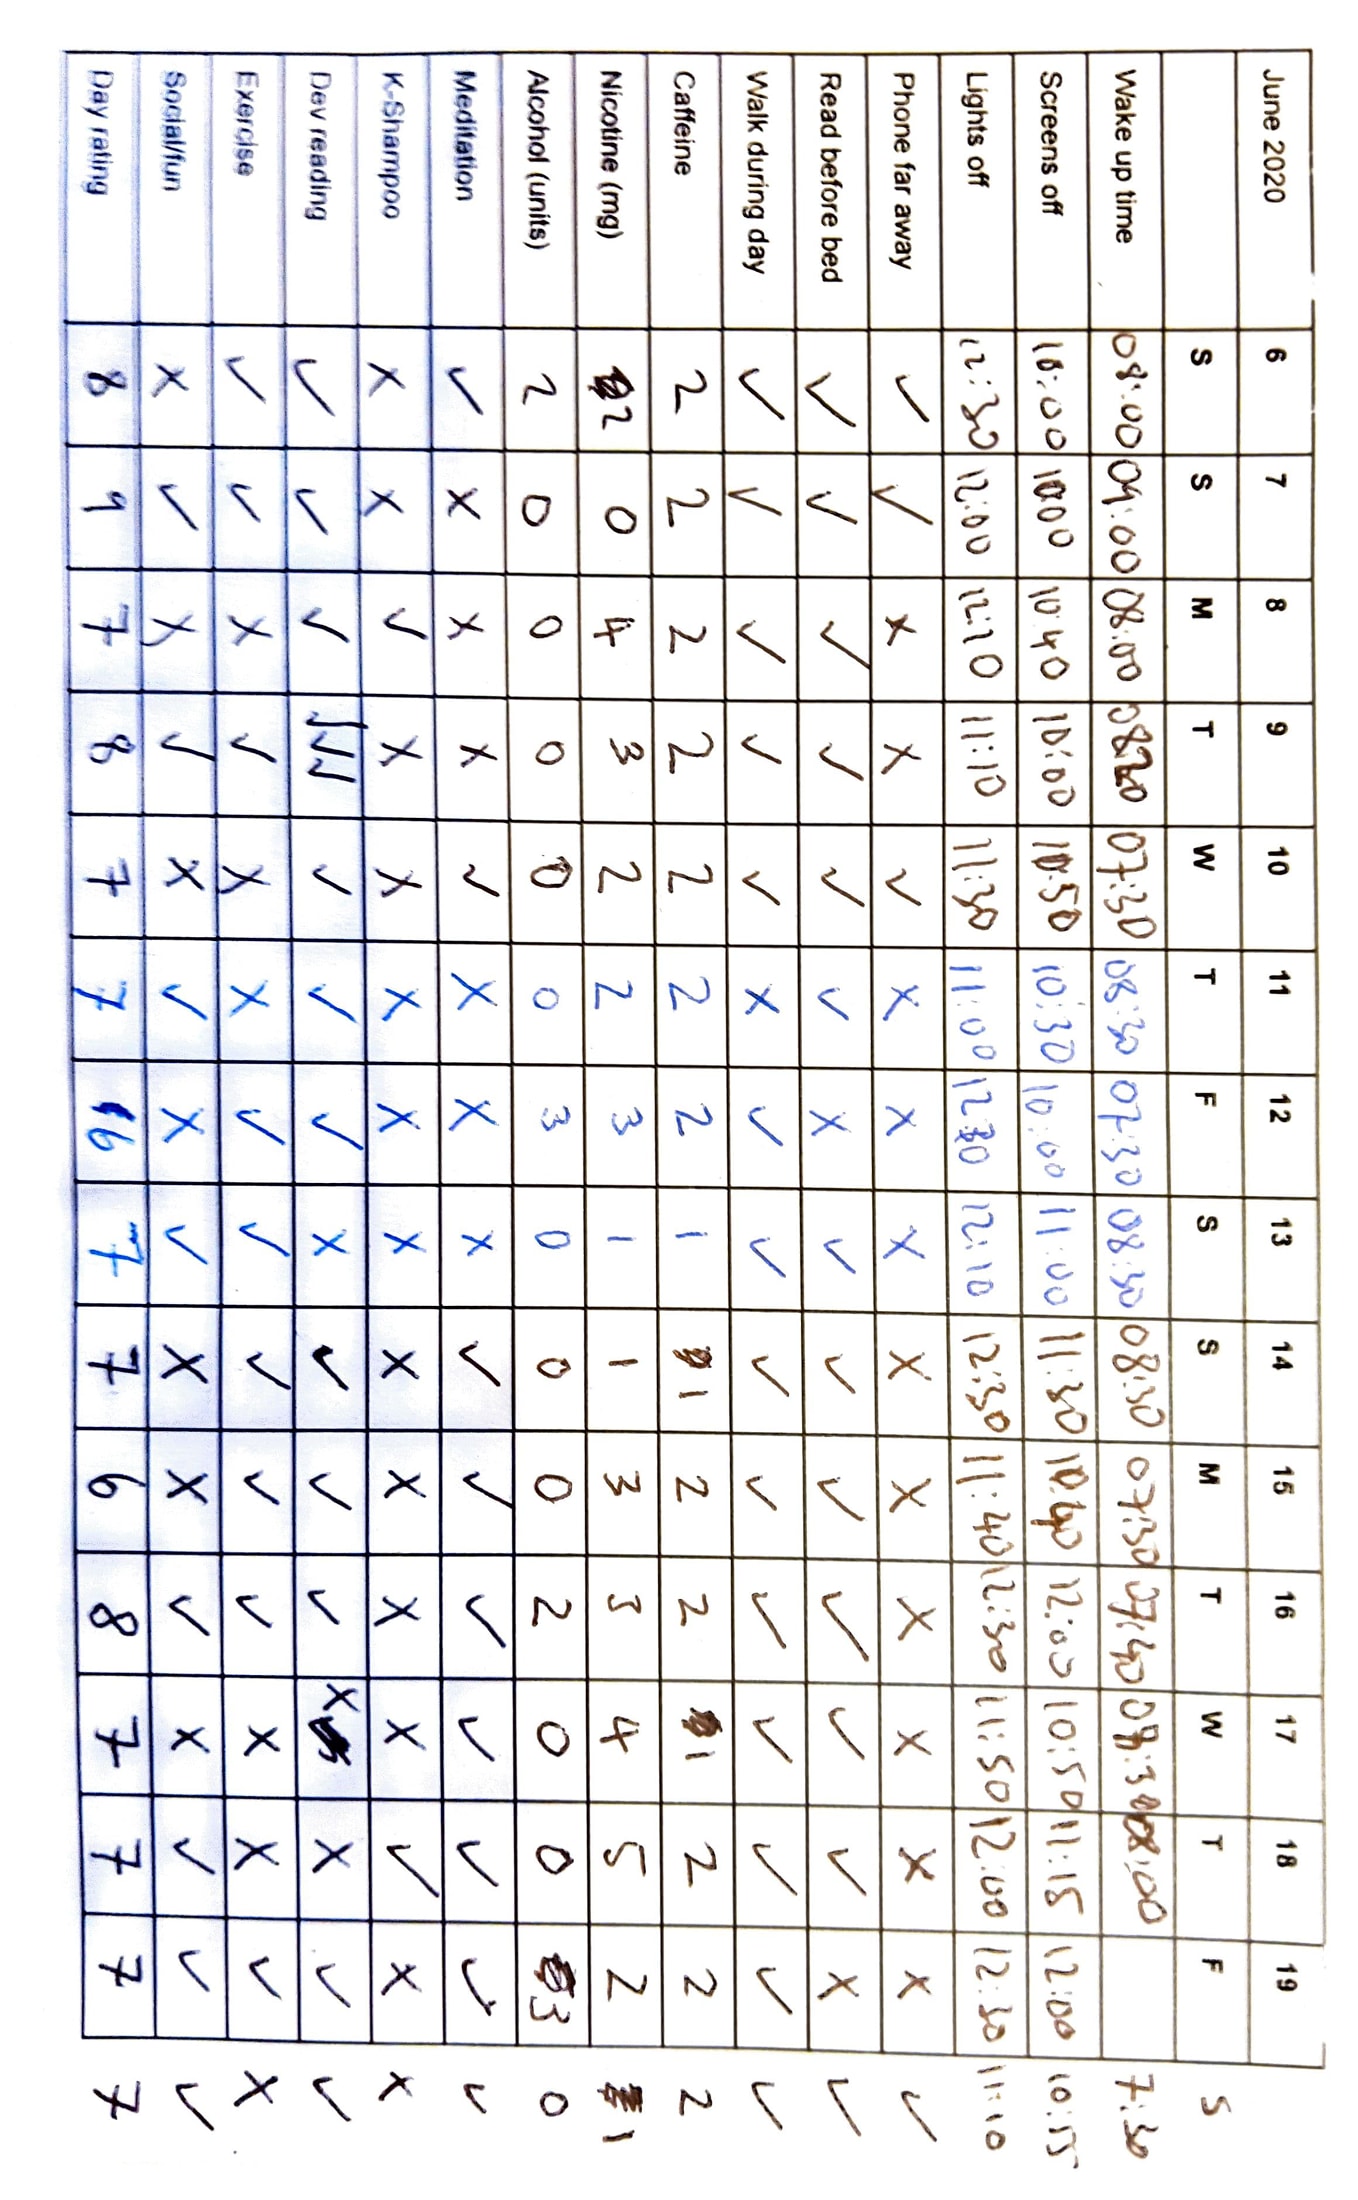 June 2020 6 7 8 9 10 11 12 13 14 15 16 17 18 19
S S M T W T F S S M T W T F S
Wake up time 08:00 09:00 08:00 0820 07:30 08:30 07:30 08:30 08:30 07:30 07:40 :30 08:00 7:30
Screens off 10:00 1000 10:40 10:00 10:50 10:30 10:00 11:00 11:30 10:40 12:00 10:50 11:15 12:00 10:15
Lights off 12:30 12:00 12:10 11:10 11:30 11:00 12:30 12:10 12:30 11:40 12:30 11:50 12:00 12:30 11:10
Phone far away ✓ ✓ X X ✓ X X X X X X X X X ✓
Read before bed ✓ ✓ ✓ ✓ ✓ ✓ X ✓ ✓ ✓ ✓ ✓ ✓ X ✓
Walk during day ✓ ✓ ✓ ✓ ✓ X ✓ ✓ ✓ ✓ ✓ ✓ ✓ ✓ ✓
Caffeine 2 2 2 2 2 2 2 1 1 2 2 1 2 2 2
Nicotine (mg) 2 0 4 3 2 2 3 1 1 3 3 4 5 2 1
Alcohol (units) 2 0 0 0 0 0 3 0 0 0 2 0 0 3 0
Meditation ✓ X X X ✓ X X X ✓ ✓ ✓ ✓ ✓ ✓ ✓
K-Shampoo X X ✓ X X X X X X X X X ✓ X X
Dev reading ✓ ✓ ✓ ✓✓✓ ✓ ✓ ✓ X ✓ ✓ ✓ X X ✓ ✓
Exercise ✓ ✓ X ✓ X X ✓ ✓ ✓ ✓ ✓ X X ✓ X
Social/fun X ✓ X ✓ X ✓ X ✓ X X ✓ X ✓ ✓ ✓
Day rating 8 9 7 8 7 7 6 7 7 6 8 7 7 7 7